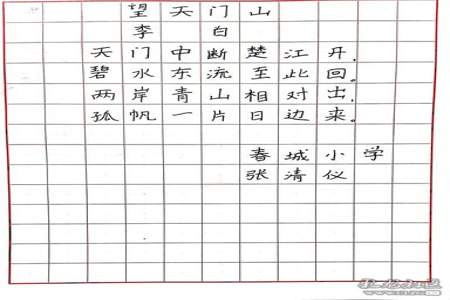 望天门山
李白
天门中断楚江开，
碧水东流至此回。
两岸青山相对出，
孤帆一片日边来。
春城小学
张清仪